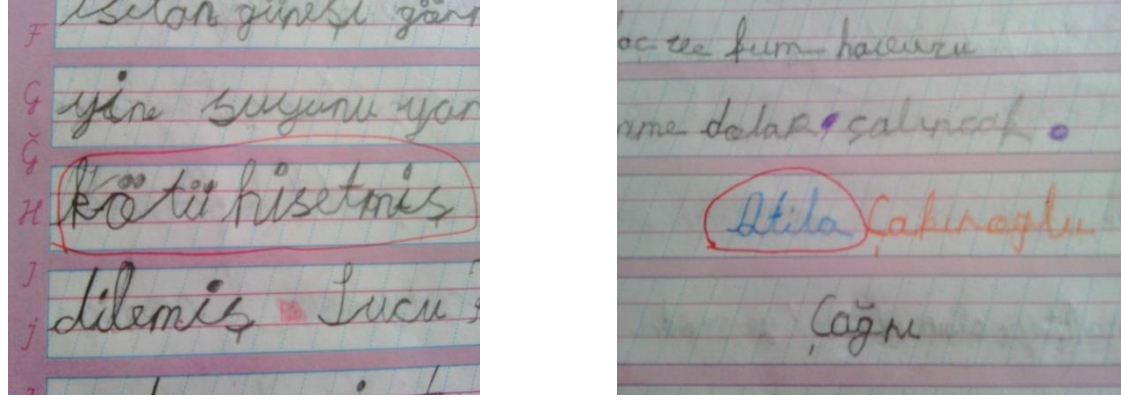 ısıtan güneşi gör
F
G
yine suyunu yar
Ğ
H kötü hisetmiş
I
dilemiş. Sucu
j
kum havuzu
dolap, salıncak.
Atila Çakıroğlu
Çağrı